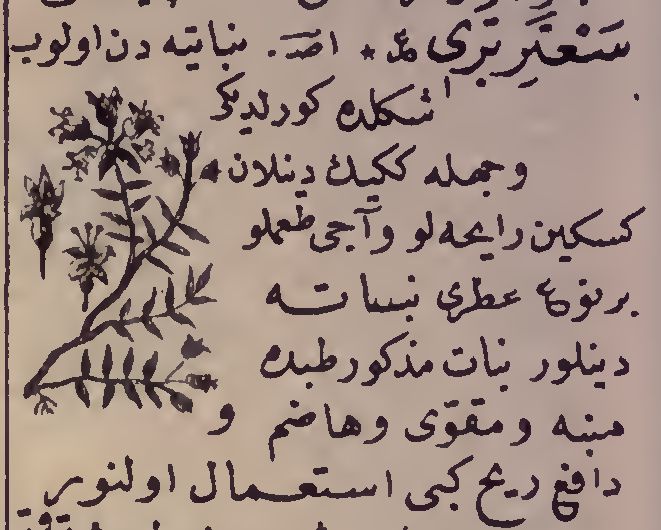 سَعْتَرِ بَرِّى مذ ٭ اصذ. نباتیه دن اولوب
شكلده كورلدیكی
وجهله ككیك دینلان
كسكین رایحه لو وآجی طعملو
بر نوع عطری نباته
دینلور نبات مذكور طبده
منبه و مقوّی وهاضم و
دافع ریح كبی استعمال اولنور